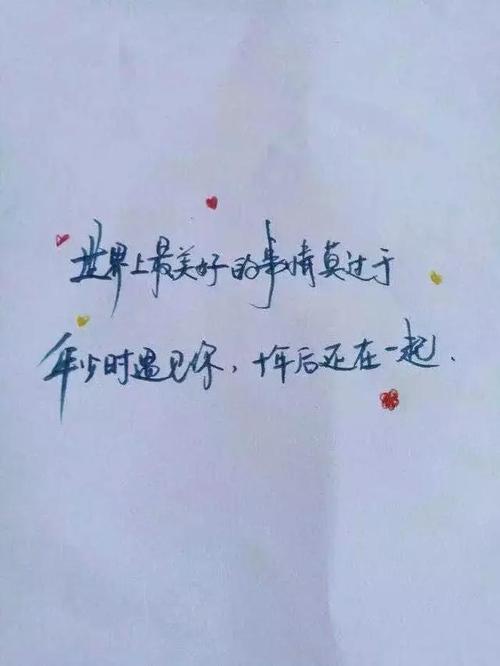 世界上最美好的事情莫过于
年少时遇见你，十年后还在一起.